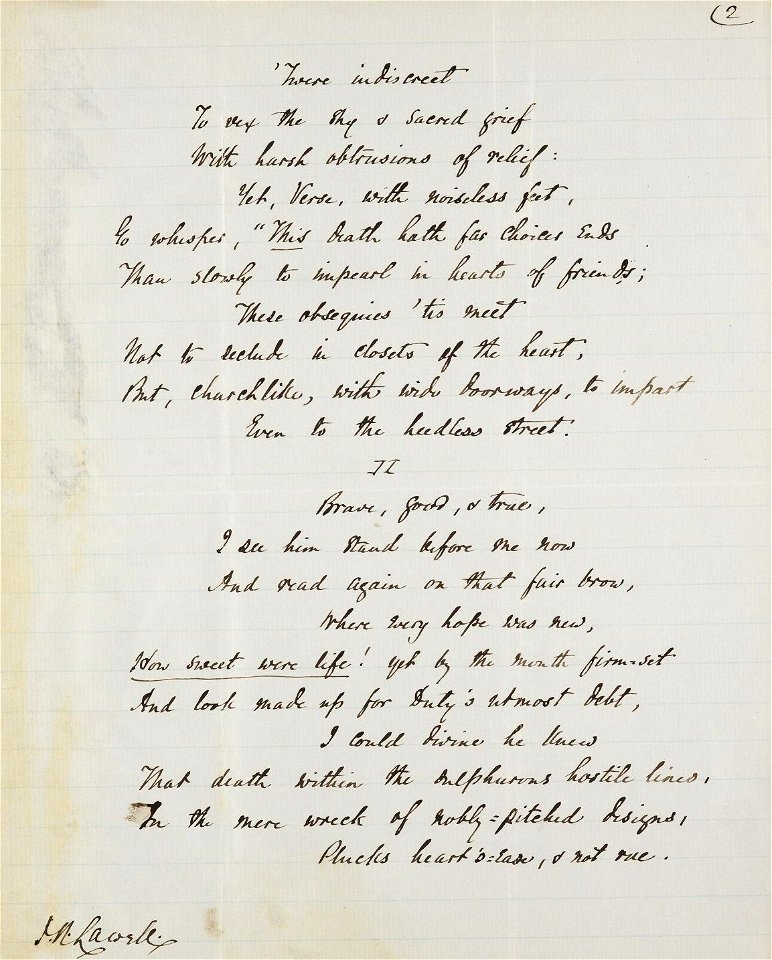 (2
'Twere indiscreet
To vex the shy & sacred grief
With harsh obtrusions of relief:
Yet, Verse, with noiseless feet,
Go whisper, "This death hath far choicer Ends
Than slowly to impearl in hearts of friends;
These obsequies 'tis meet
Not to seclude in closets of the heart,
But, churchlike, with wide doorways, to impart
Even to the heedless street."
II
Brave, good, & true,
I see him stand before me now
And read again on that fair brow,
Where every hope was new,
How sweet were life! yet by the mouth firm-set
And look made up for Duty's utmost debt,
I could divine he knew
That death within the sulphurous hostile lines,
In the mere wreck of nobly-pitched designs,
Plucks heart's-ease, & not rue.
J. R. Lowell.